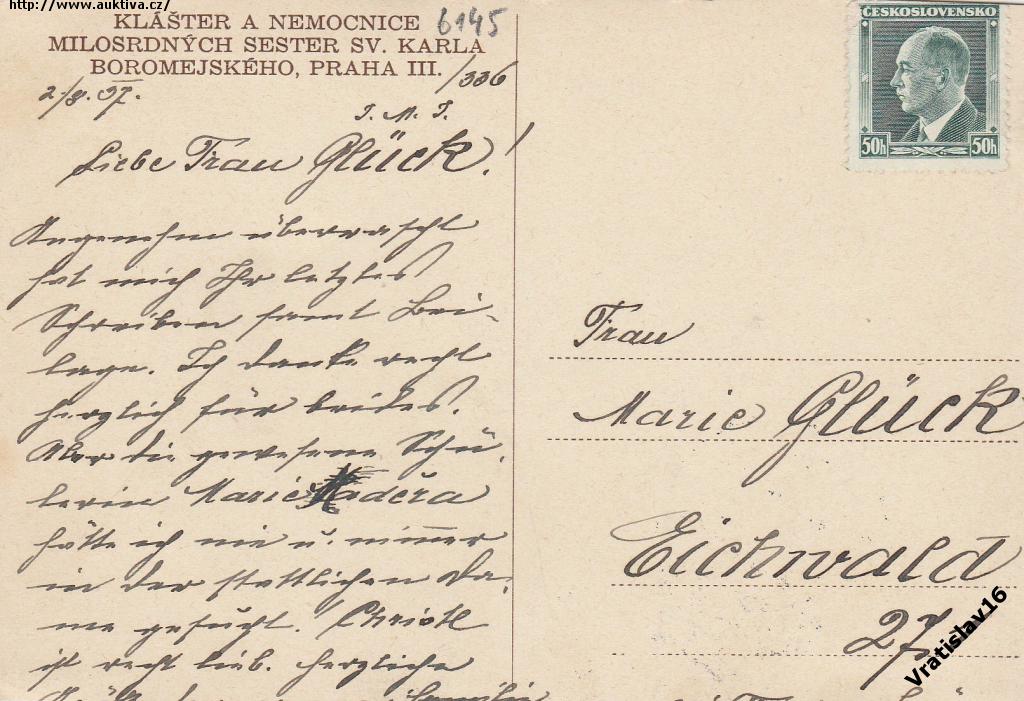 http://www.auktiva.cz/
KLÁŠTER A NEMOCNICE
MILOSRDNÝCH SESTER SV. KARLA
BOROMEJSKÉHO, PRAHA III./336
6145
2/8.37.
J. M. J.
Liebe Frau Glück!
Angenehm überrascht
hat mich Ihr letztes
Schreiben samt Bei-
lage. Ich danke recht
herzlich für beides.
Aber die gewesene Schü-
lerin Marie Maděra
hätte ich nie u. nimmer
in der stattlichen Da-
me gesucht. Christl
ist recht lieb. Herzliche
ČESKOSLOVENSKO
50h 50h
Frau
Marie Glück
Eichwald
27
Vratislav16